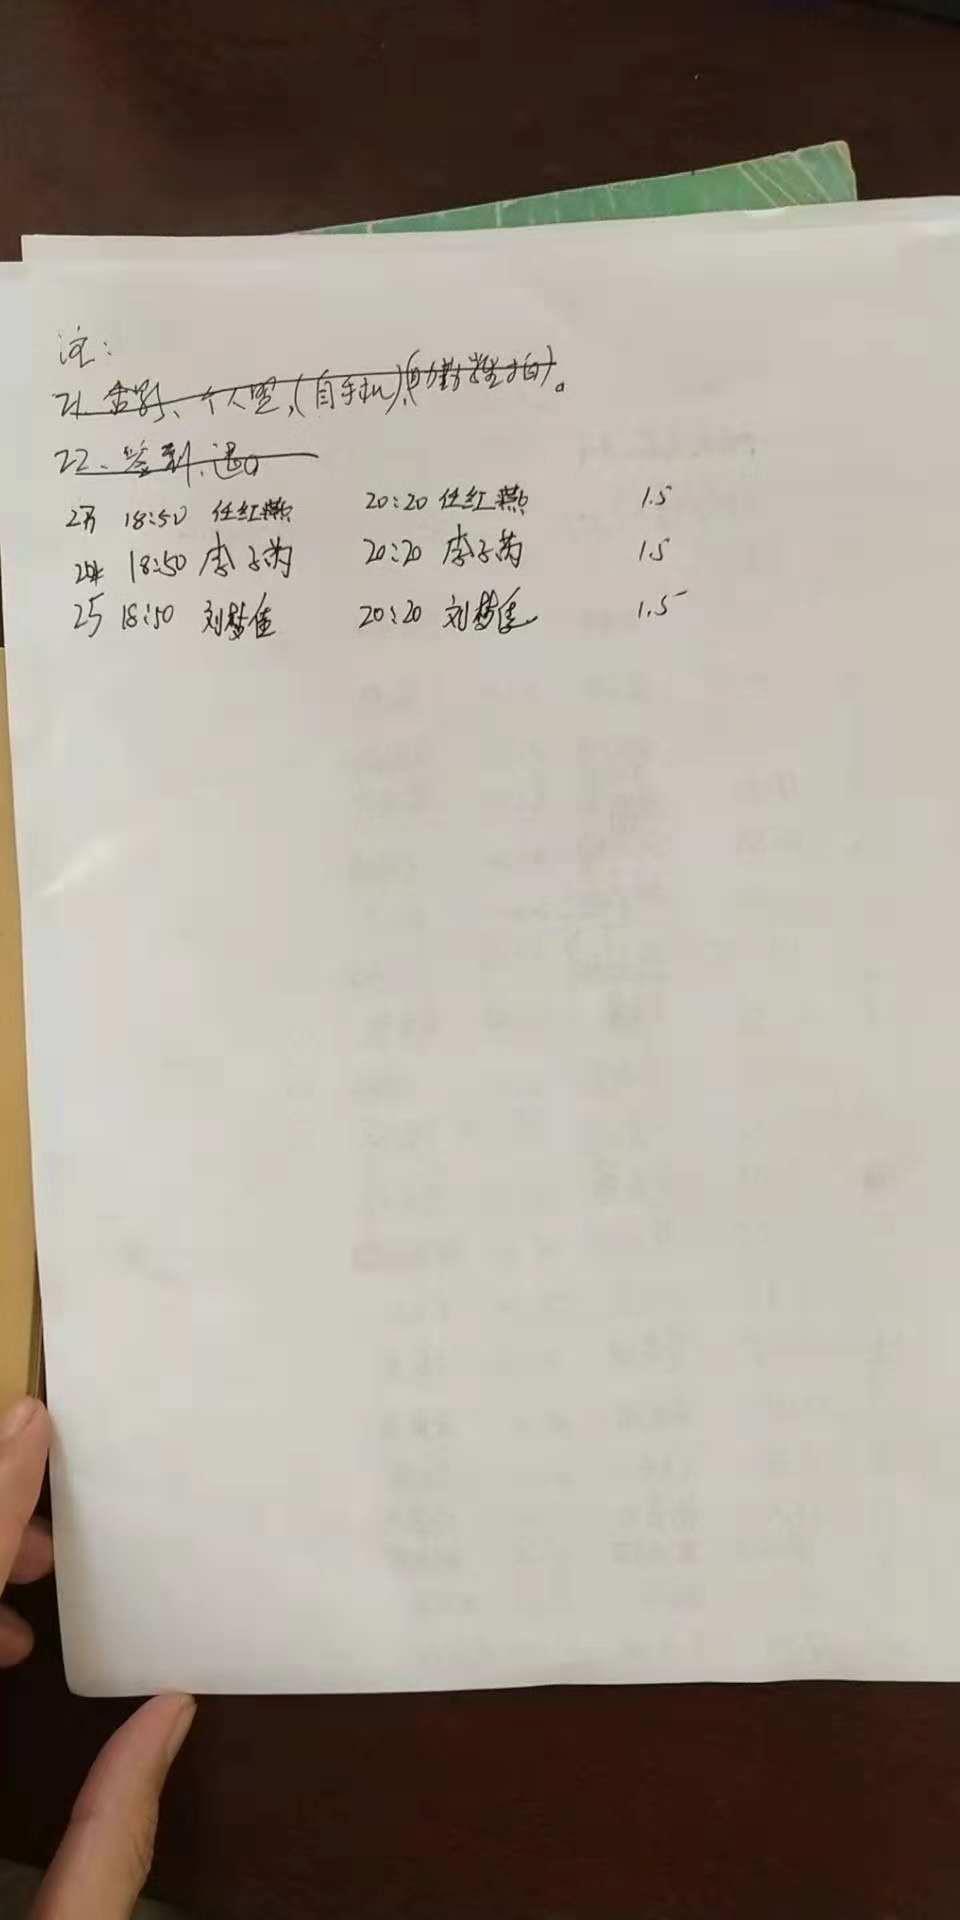 注:
21. 合影、个人照,(自手机)、(助勤学生拍)。
22、签到、退。
23 18:50 任红燕 20:20 任红燕 1.5
24 18:50 李子芮 20:20 李子芮 1.5
25 18:50 刘梦佳 20:20 刘梦佳 1.5